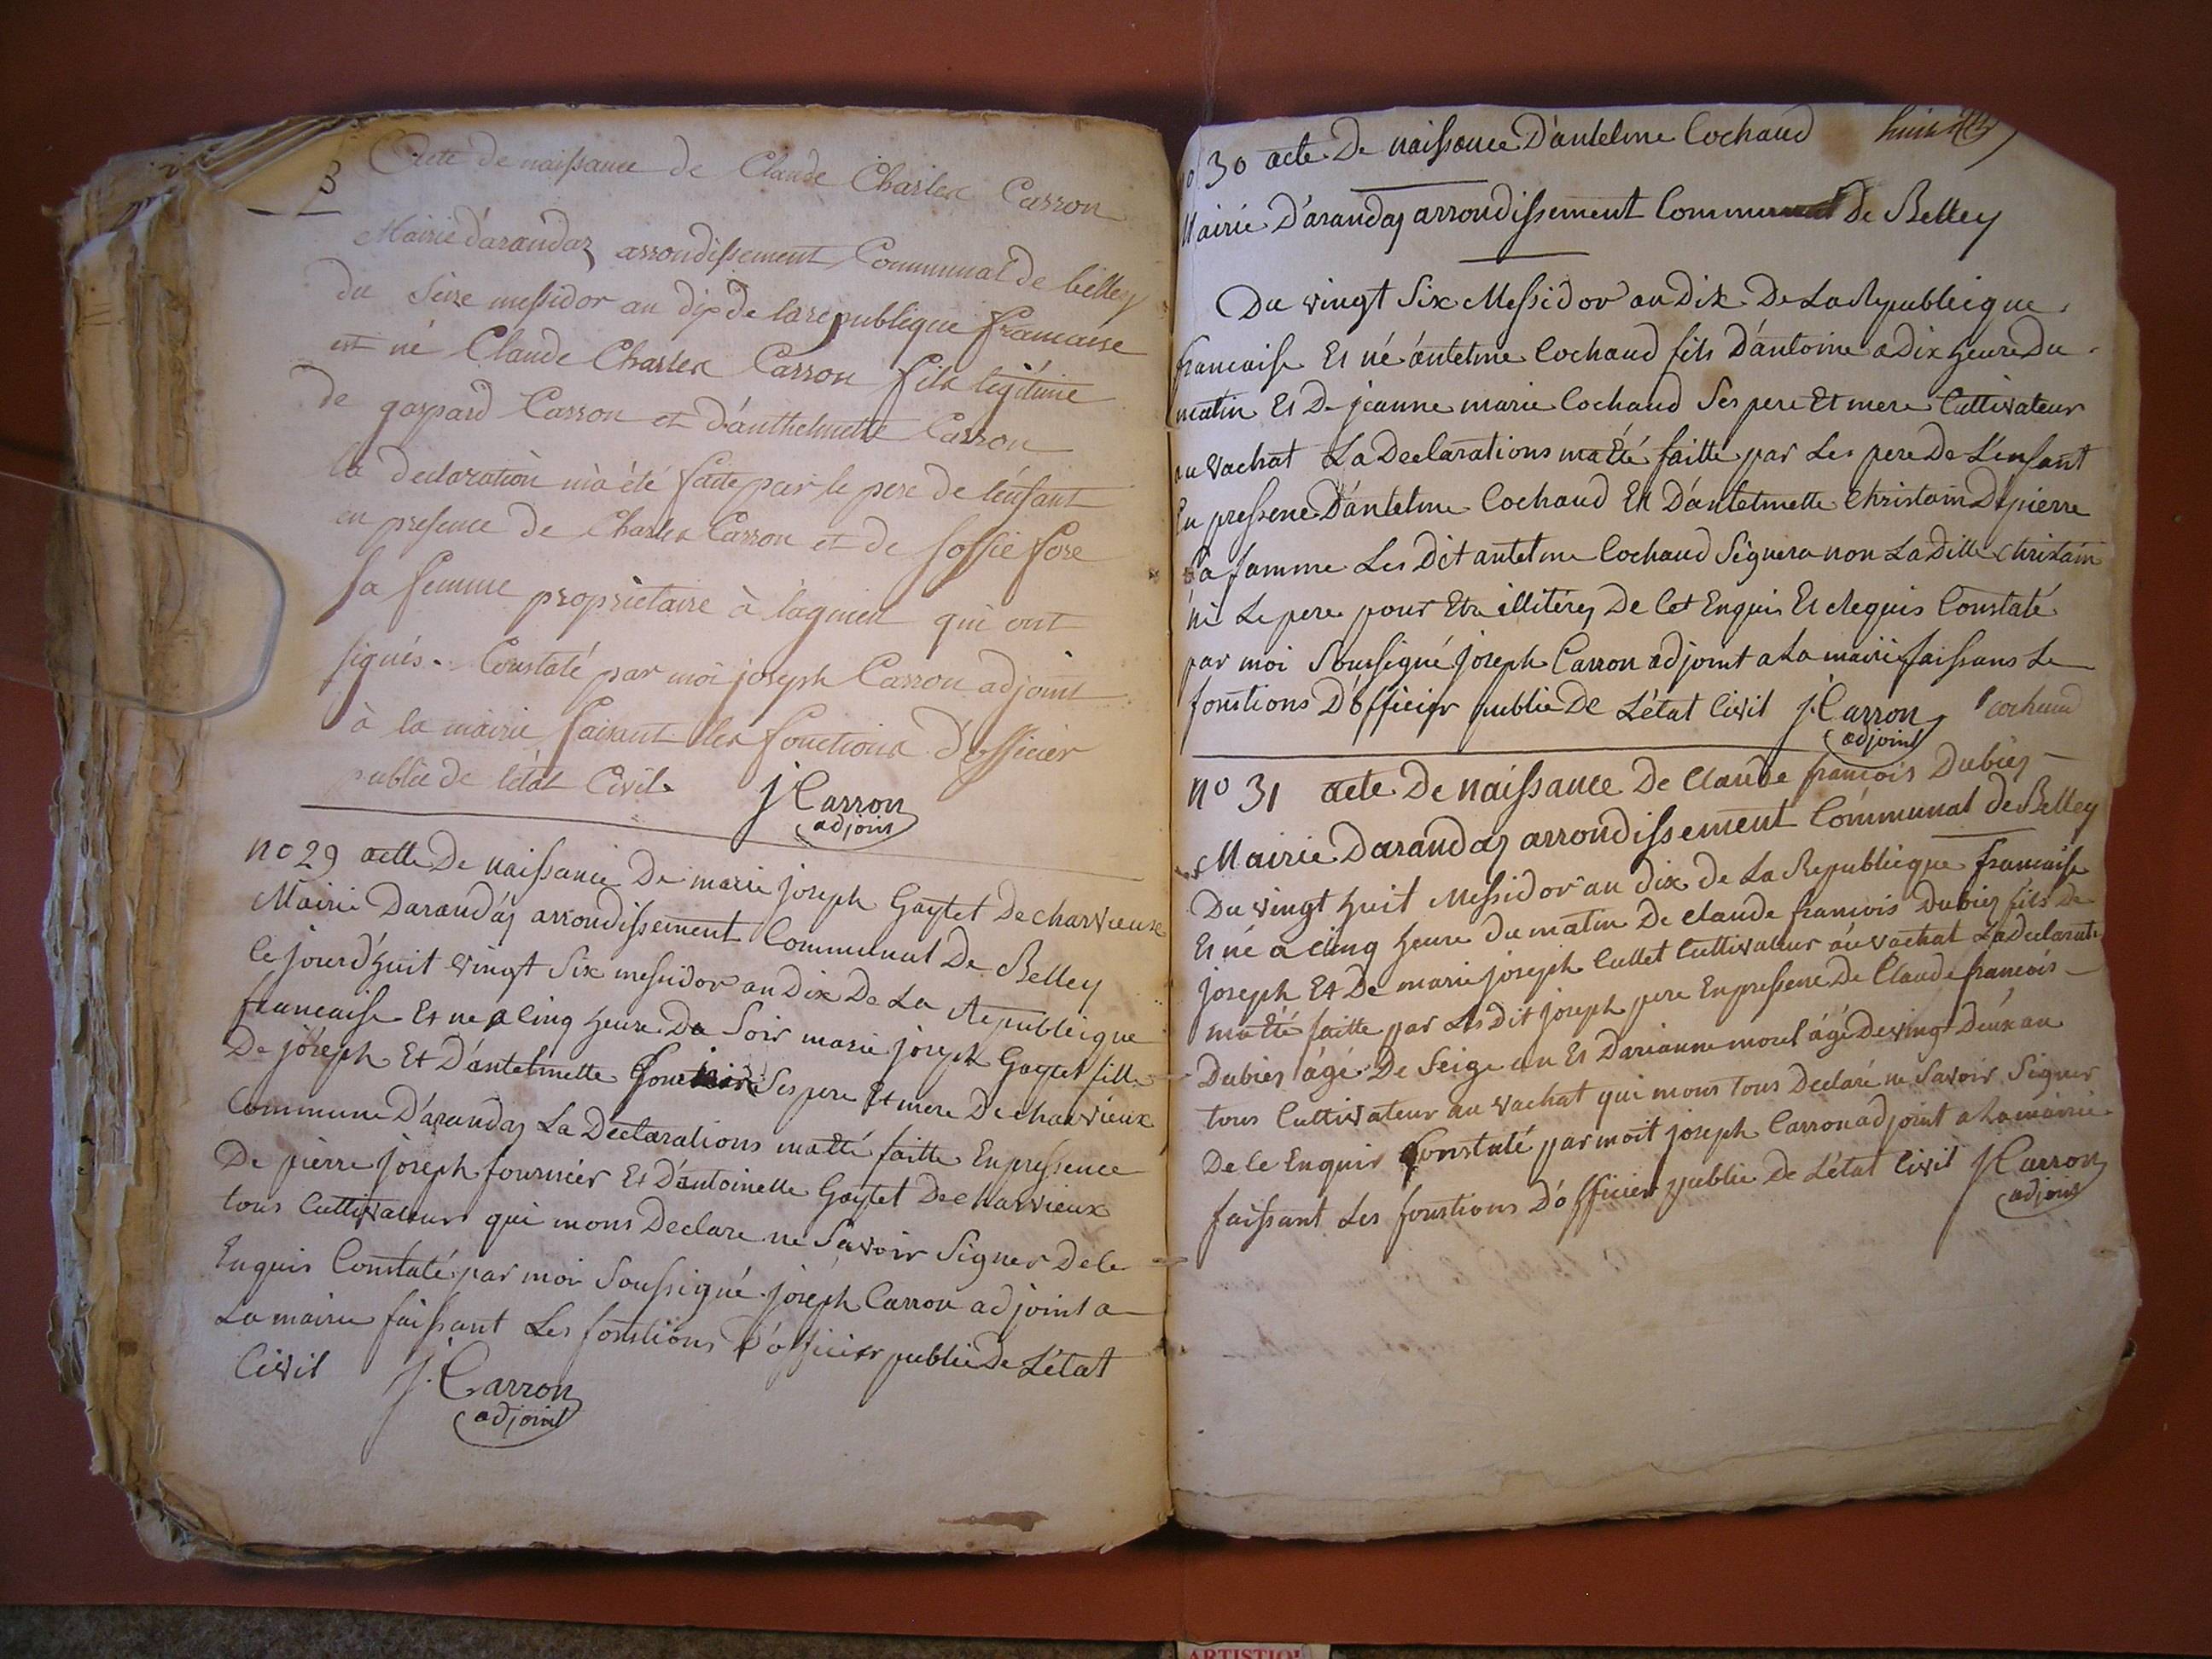 8 Acte de naissance de Claude Charles Carron
Mairie d'arandaz arrondissement Communal de belley
du Seize messidor an dix de la republique francaise
est né Claude Charles Carron fils legitime
de gaspard Carron et d'anthelmette Carron
la declaration m'a été faite par le pere de l'enfant
en presence de Charles Carron et de soffie fore
sa femme propriétaire à lagnieu qui ont
signés. Constaté par moi joseph Carron adjoint
à la mairie faisant les fonctions d'officier
public de l'état Civil. J Carron
adjoint
no 29 actte De naissance De marie joseph Gaytet De charvieux
Mairie Darandaz arrondissement Communal De Belley
le jourd'huit vingt Six messidor an Dix De La Republicque
francaise Et ne a cinq heure Du Soir marie joseph Gaytet fille
De joseph Et D'antelmette Ses pere Et mere De charvieux
Commune D'arandaz La Declarations matté faitte En pressence
De pierre joseph fournier Et D'antoinette Gaytet De charvieux
tous Cuttivateurs qui mons Declare ne Savoir Signer De le
Enquis Constaté par moi Soussigné joseph Carron adjoint a
La mairie faissant Les fonstions D'officier public De L'état
Civil J. Carron
adjoint
no 30 acte De naissance D'antelme Cochaud huit
Mairie D'arandaz arrondissement Communal De Belley
Du vingt Six Messidor an Dix De La Republicque
francaise Et né antelme Cochaud fils D'antoine a Dix heure Du
matin Et De jeanne marie Cochaud Ses pere Et mere Cuttivateur
au vachat La Declarations matté faitté par Les pere De L'enfant
En pressene D'antelme Cochaud Et D'antelmette Christain D pierre
Sa famme Les Dit antelme Cochaud Signera non La Ditte Christain
ni Le pere pour Etre illitérez De Cet Enquis Et Requis Constaté
par moi Soussigné joseph Carron adjoint a La mairie faissans Le
fonstions D'officier public De L'état Civil J. Carron Cochaud
adjoint
no 31 acte De naissance De Claude francois Dubiez
Mairie Darandaz arrondissement Communal de Belley
Du vingt huit Messidor an dix de La Republicque francaise
Et né a cinq heure du matin De claude francois Dubiez fils De
joseph Et De marie joseph Cullet Cuttivateur au vachat La Declarati
matté faitte par Les Dit joseph pere En pressene De Claude francois
Dubiez agé De Seige an Et Darianne morel agé De vingt Deux an
tous Cuttivateur au vachat qui mons tous Declaré ne Savoir Signer
De le Enquis Constaté par moit joseph Carron adjoint a La mairie
faissant Les fonstions D'officier public De L'état Civil J Carron
adjoint
ARTISTIQU